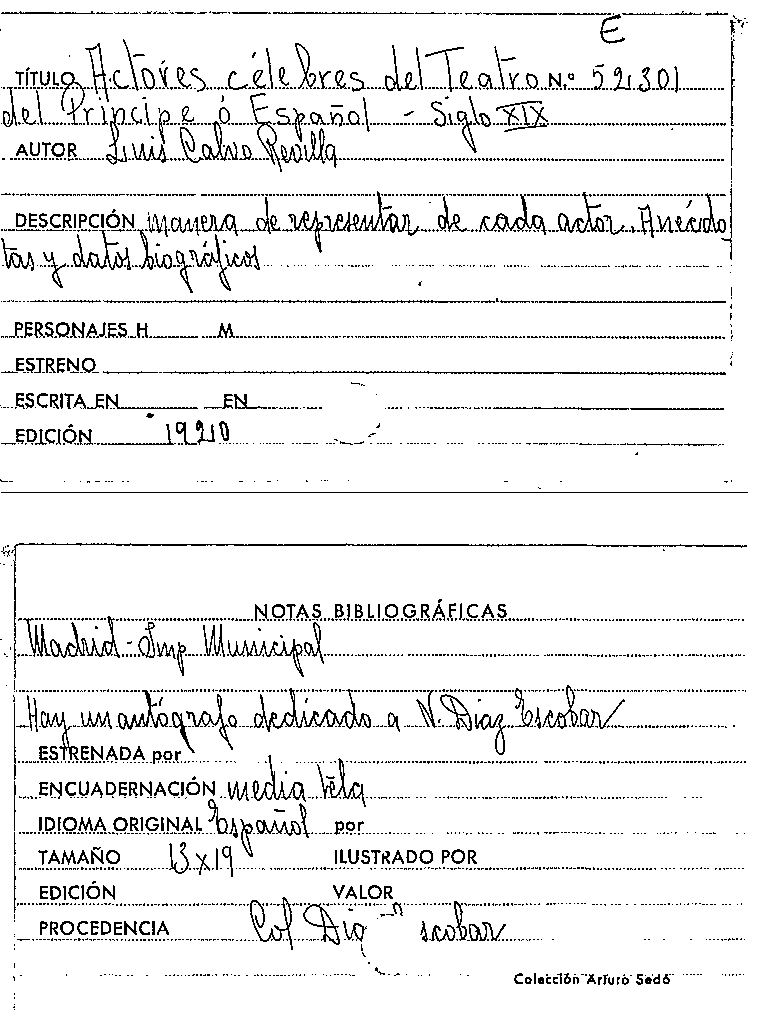 E
TÍTULO Actores célebres del Teatro N.º 52301
del Principe ó Español - Siglo XIX
AUTOR Luis Calvo Revilla
DESCRIPCIÓN manera de representar de cada actor. Anécdo
tas y datos biográficos
PERSONAJES H M
ESTRENO
ESCRITA EN EN
EDICIÓN 1920
NOTAS BIBLIOGRÁFICAS
Madrid - Imp Municipal
Hay un autógrafo dedicado a N. Diaz Escobar
ESTRENADA por
ENCUADERNACIÓN media tela
IDIOMA ORIGINAL Español por
TAMAÑO 13x19 ILUSTRADO POR
EDICIÓN VALOR
PROCEDENCIA Col Dia scobar
Colección Arturo Sedó